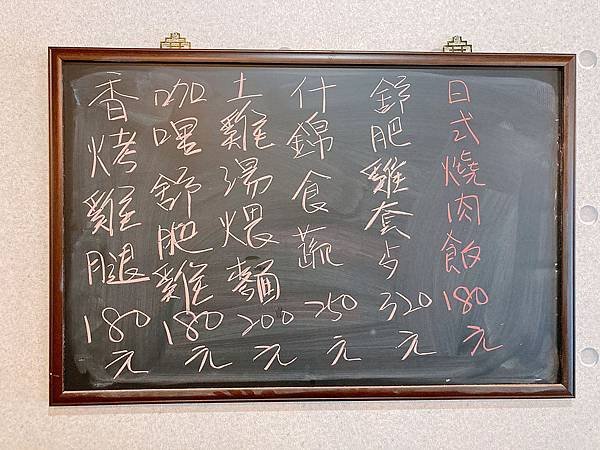 日式燒肉飯180元
舒肥雞套夕320元
什錦食蔬250元
土雞湯煨麵200元
咖哩舒肥雞180元
香烤雞腿180元